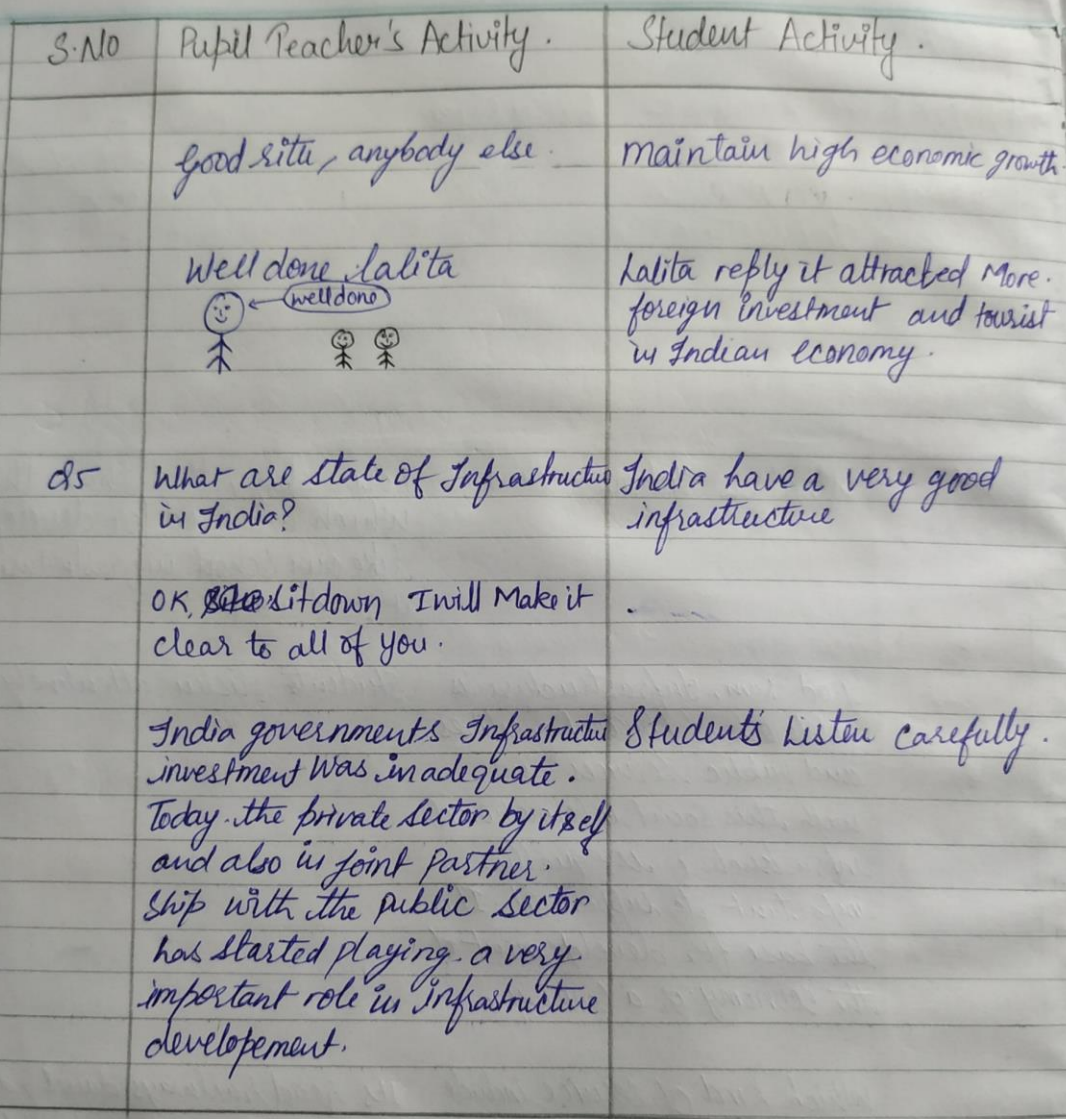 S.NO Pupil Teacher's Activity. Student Activity.
Good ritu, anybody else. maintain high economic growth.
Well done lalita Lalita reply it attracted More.
welldone foreign investment and tourist
in Indian economy.
Q5 What are state of Infrastructu India have a very good
in India? infrastructure
OK, sitdown I will Make it
clear to all of you.
India governments Infrastructu Students' Listen carefully.
investment was inadequate.
Today. the private sector by itself
and also in joint partner.
ship with the public sector
has started playing. a very
important role in infrastructure
developement.